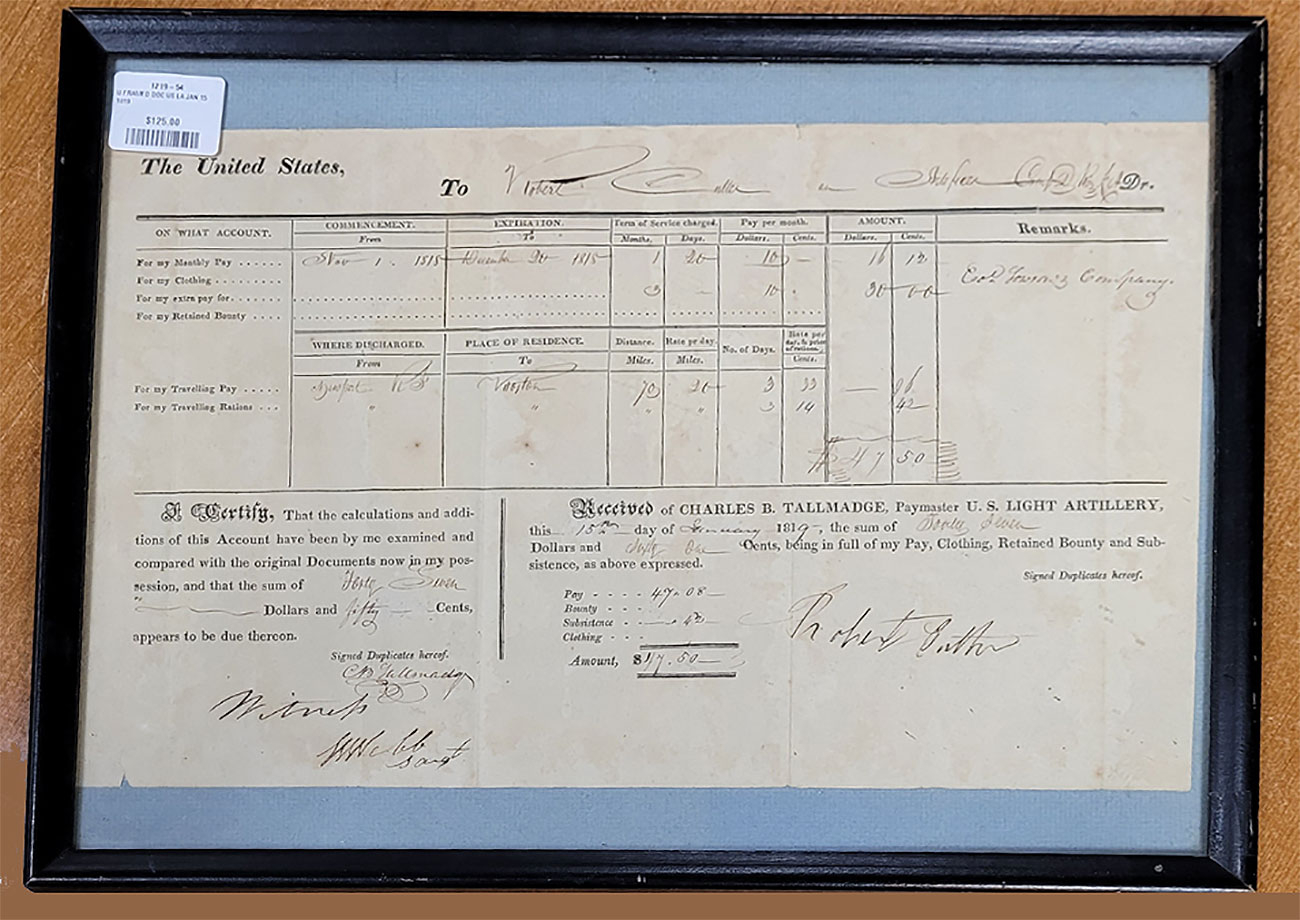 1219-54
U FRAMED DOC US LA JAN 15
1819
$125.00
The United States,
To Robert Cutter an Dr.
ON WHAT ACCOUNT. COMMENCEMENT. EXPIRATION. Term of Service charged. Pay per month. AMOUNT. Remarks.
From To Months. Days. Dollars. Cents. Dollars. Cents.
For my Monthly Pay Nov 1. 1818 December 20 1818 1 20 10 — 16 12
For my Clothing Company.
For my extra pay for 3 — 10 . 30 00
For my Retained Bounty
WHERE DISCHARGED. PLACE OF RESIDENCE. Distance. Rate pr day. No. of Days. Rate per day, & price of rations.
From To Miles. Miles. Cents.
For my Travelling Pay Newport R I Boston 70 20 3 33 — 96
For my Travelling Rations " " " " 3 14 42
$ 47 50
I Certify, That the calculations and addi-
tions of this Account have been by me examined and
compared with the original Documents now in my pos-
session, and that the sum of Forty Seven
Dollars and fifty Cents,
appears to be due thereon.
Signed Duplicates hereof.
CB Tallmadge
Witness
Webb
Sargt
Received of CHARLES B. TALLMADGE, Paymaster U. S. LIGHT ARTILLERY,
this 15th day of January 1819, the sum of Forty Seven
Dollars and Cents, being in full of my Pay, Clothing, Retained Bounty and Sub-
sistence, as above expressed.
Signed Duplicates hereof.
Pay 47.08
Bounty
Subsistence 42
Clothing
Amount, $47.50
Robert Cutter